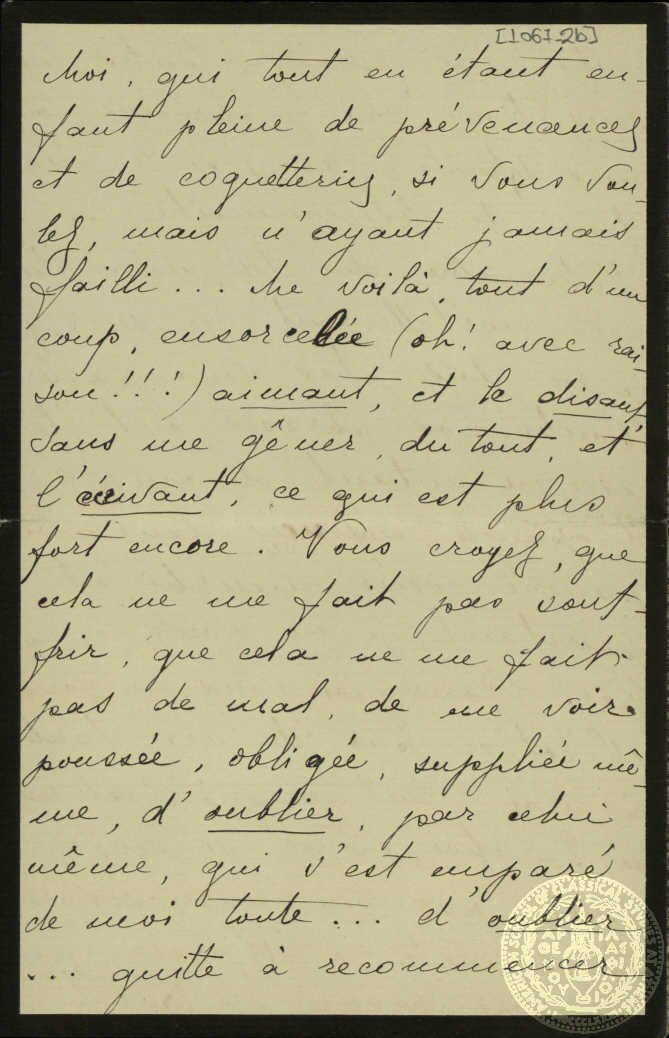 [1067-2b]
Moi, qui tout en étant en-
fant pleine de prévenances
et de coquetteries, si vous vou-
lez, mais n'ayant jamais
failli... Me voilà, tout d'un
coup, ensorcelée (oh! avec rai-
son!!!) aimant, et le disant
sans me gêner, du tout, et
l'écrivant, ce qui est plus
fort encore. Vous croyez, que
cela ne me fait pas souf-
frir, que cela ne me fait
pas de mal, de me voir
poussée, obligée, suppliée mê-
me, d'oublier, par celui
même, qui s'est emparé
de moi toute... d'oublier
... quitte à recommencer